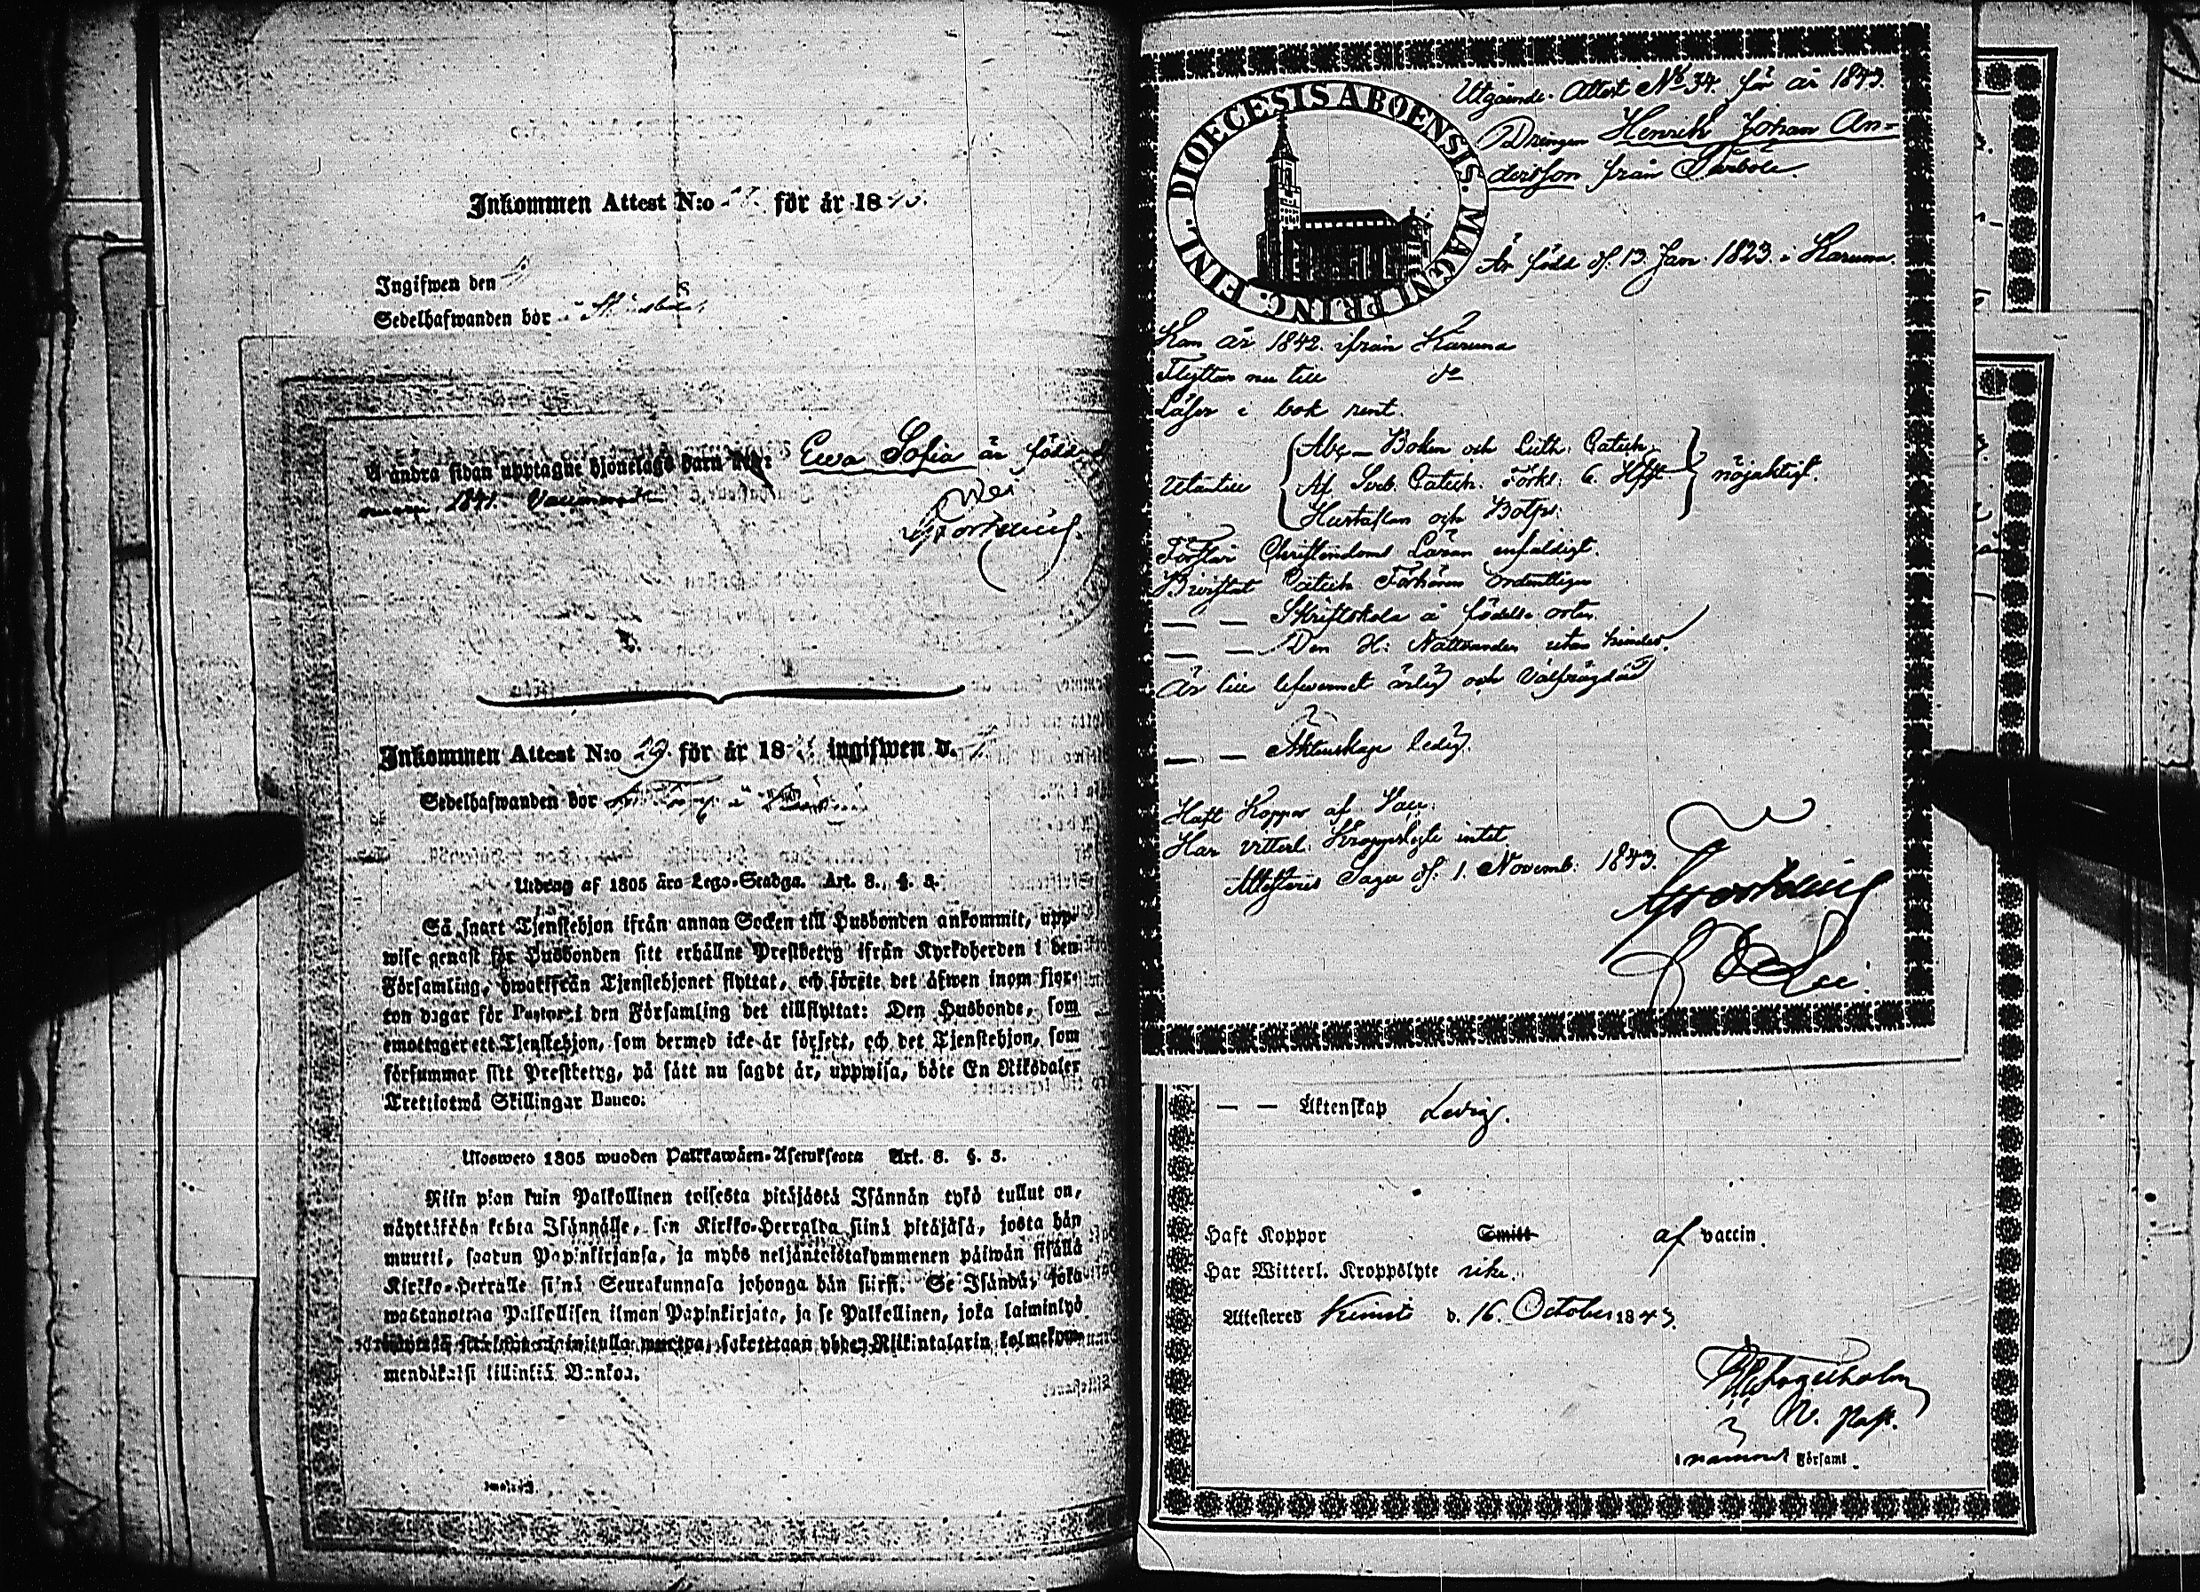 Inkommen Attest N:o för år 18
Ingifwen den
Sedelhafwanden bor
Å andra sidan upptagne hjonelags barn Ewa Sofia är född
1841. Vaccinerad
Inkommen Attest N:o 29. för år 18 ingifwen d.
Sedelhafwanden bor
Utdrag af 1805 års Lego-Stadga. Art. 8., §. 3.
Så snart Tjenstehjon ifrån annan Socken till Husbonden ankommit, upp-
wise genast för Husbonden sitt erhållne Prestbetyg ifrån Kyrkoherden i den
Församling, hwarifrån Tjenstehjonet flyttat, och förete det äfwen inom fjor-
ton dagar för Pastor i den Församling det tillflyttat: Den Husbonde, som
emottager ett Tjenstehjon, som dermed icke är försedt, och det Tjenstehjon, som
försummar sitt Prestbetyg, på sätt nu sagdt är, uppwisa, böte En Riksdaler
Trettiotwå Skillingar Banco.
Ulosweto 1805 wuoden Palkkawäen-Asetuksesta Art. 8. §. 3.
Niin pian kuin Palkollinen toisesta pitäjästä Isännän tykö tullut on,
näyttäköön kohta Isännälle, sen Kirkko-Herralda siinä pitäjäsä, josta hän
muutti, saatun Papinkirjansa, ja myös neljäntoistakymmenen päiwän sisällä
Kirkko-Herralle siinä Seurakunnasa johonga hän siirsi. Se Isändä, joka
wastanottaa Palkollisen ilman Papinkirjata, ja se Palkollinen, joka laiminlyö
sakotetaan yhden Riikintalarin kolmekym-
mendäkaksi killinkiä Bankoa.
DIOECESIS ABOENSIS. MAGNI PRINC. FINL.
Utgående Attest No 34. för år 1843.
Drängen Henrik Johan An-
dersson från
Är född d. 13 Jan. 1823 i Karuna.
Kom år 1842 ifrån Karuna
Flyttar nu till do
Läser i bok rent.
Utantill
Abc-Boken och Luth. Catech.
Af Sveb. Catech. Förkl. 6. Hfst.
Hustaflan och Botps.
nöjaktigt.
Förstår Christendoms Läran enfaldigt.
Bivistat Catech. Förhören ordentligen
— — Skriftskola å födelse orten
— — Den H: Nattvarden utan hinder.
Är till lefwernet ärlig och välfrägdad
— — Äktenskap ledig.
Haft Koppor af Vacc:
Har vitterl. Kroppslyte intet
Attesteras Sagu d. 1. Novemb. 1843.
— — Äktenskap Ledig.
Haft Koppor Smitt af vaccin.
Har Witterl. Kroppslyte icke.
Attesteras Kimito d. 16. October 1843.
V. Past.
i namnde Församl.